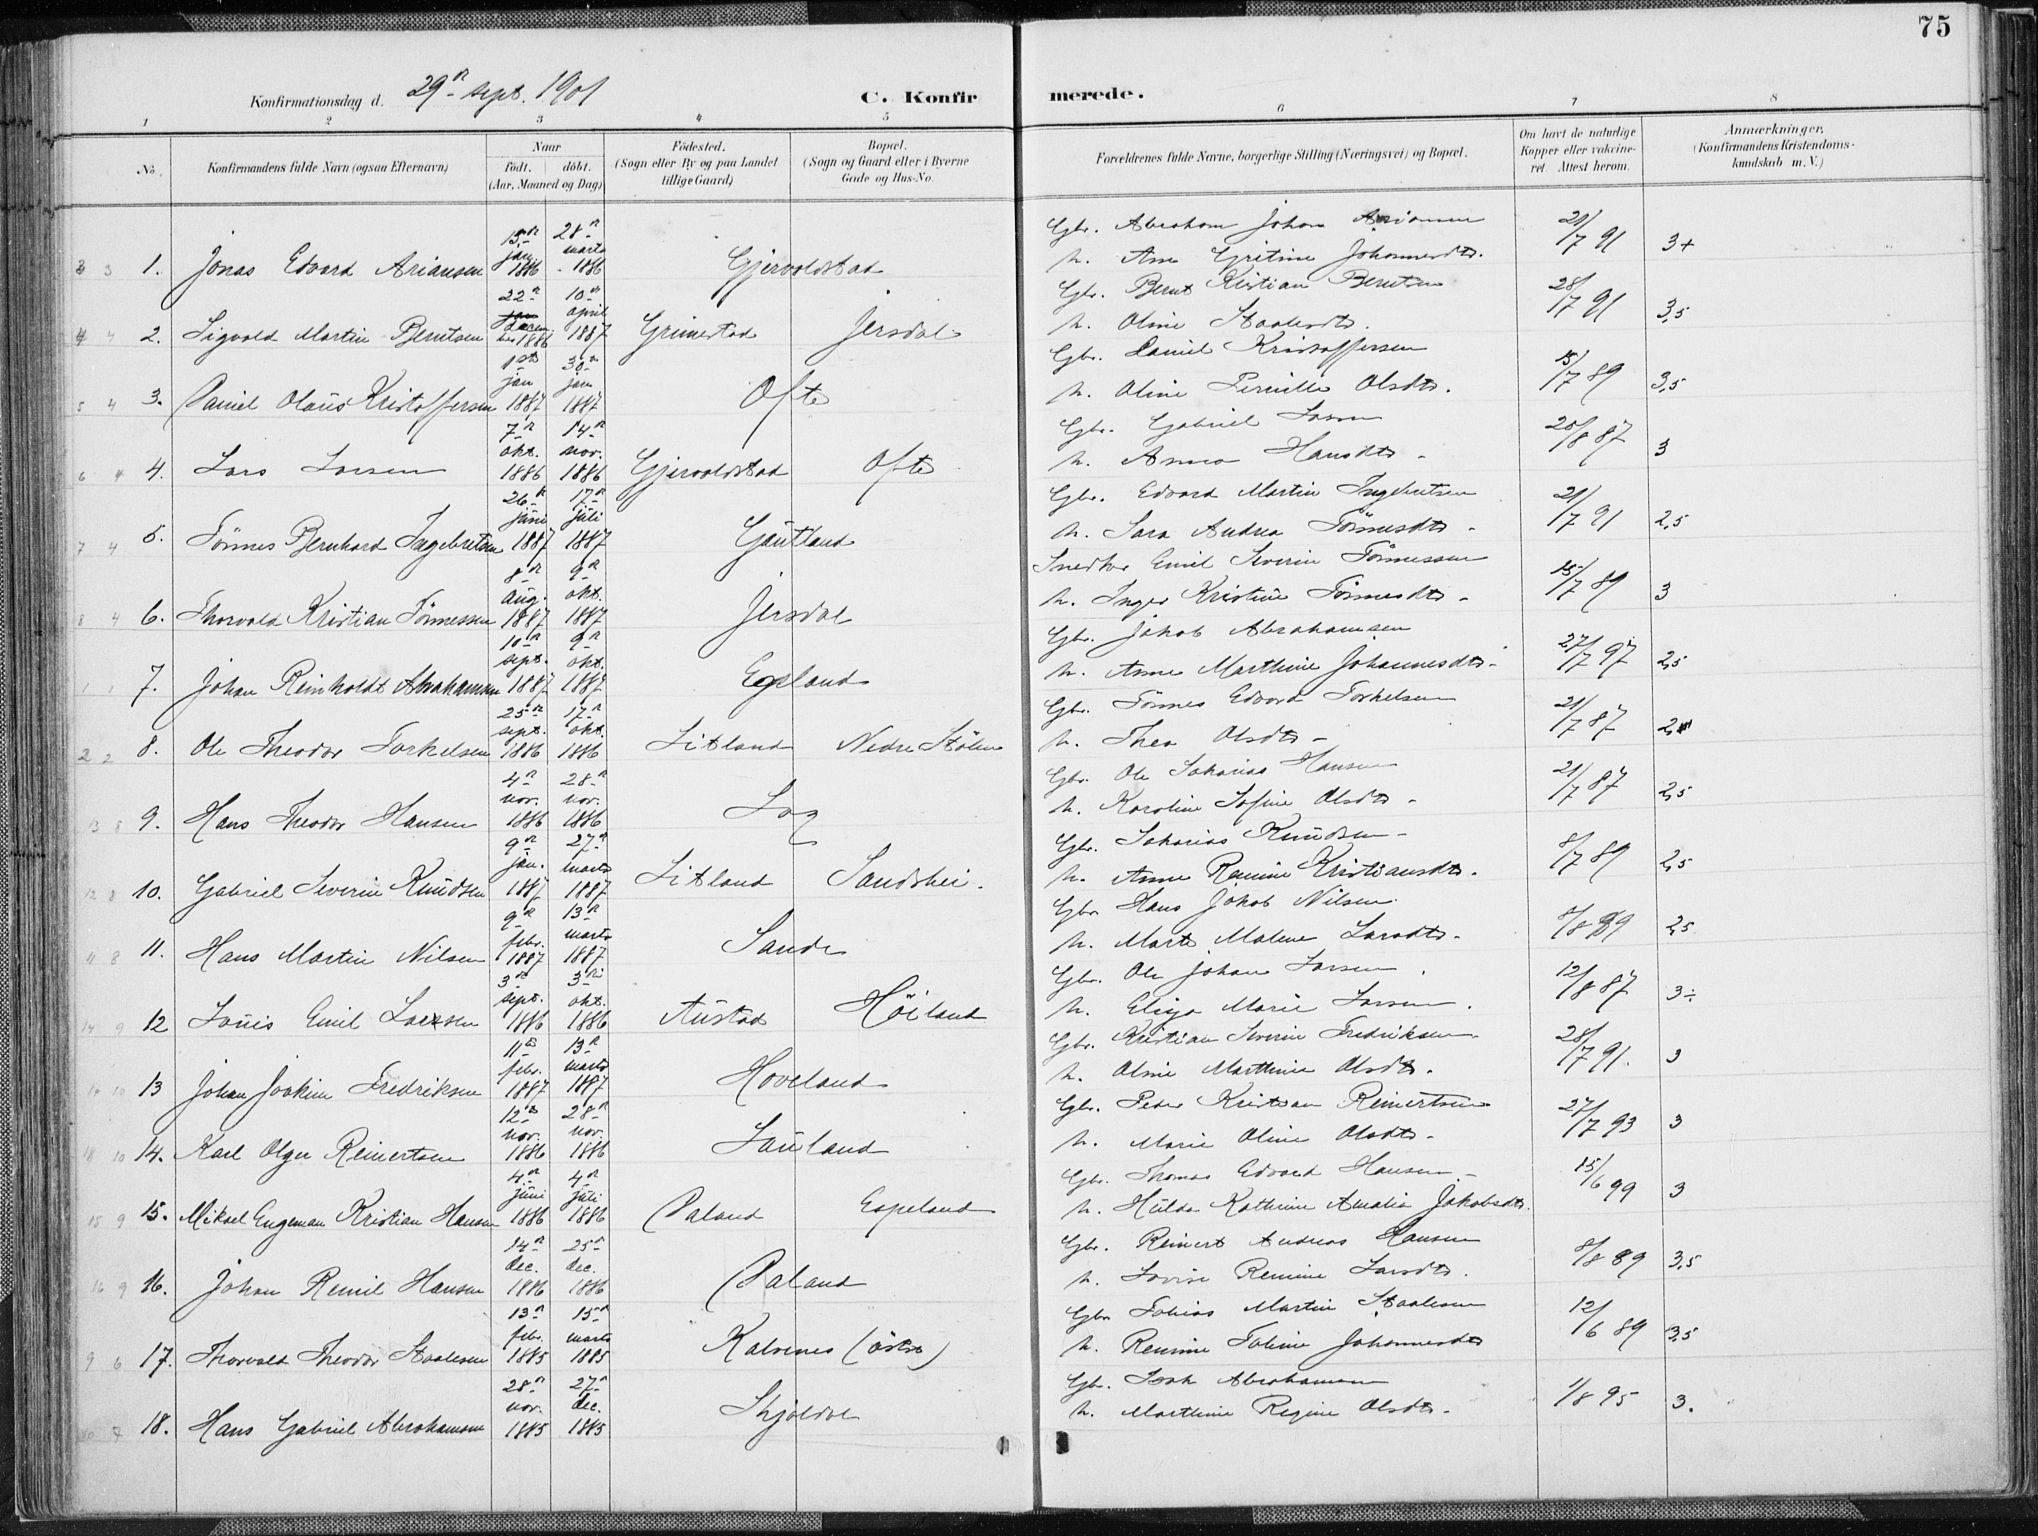 75
Konfirmationsdag d. 29de sept. 1901
C. Konfirmerede.
1 2 3 4 5 6 7 8
No. Konfirmandens fulde Navn (ogsaa Efternavn) Naar födt. döbt. (Aar, Maaned og Dag) Födested. (Sogn eller By og paa Landet tillige Gaard) Bopæl. (Sogn og Gaard eller i Byerne Gade og Hus-No. Forældrenes fulde Navne, borgerlige Stilling (Næringsvei) og Bopæl. Om havt de naturlige Kopper eller vakcineret. Attest herom. Anmærkninger. (Konfirmandens Kristendomskundskab m. V.)
1. Jonas Edvard Ariansen 15de jan. 1886 28de marts 1886 Gjervoldstad Gbr. Abraham Johan Ariansen 21/7 91 3+
h. Ane Gritine Johannesdtr.
2. Sigvald Martin Berntsen 22de decem ber 1886 10de april 1887 Grimestad Jersdal Gbr. Bernt Kristian Berntsen 28/7 91 3,5
h. Oline Staalesdtr.
3. Daniel Olaus Kristoffersen 1ste jan 1887 30de jan 1887 Ofte Gbr. Daniel Kristoffersen 15/7 89 3,5
h. Oline Pernille Olsdtr.
4. Lars Larsen 7de okt. 1886 14de nov. 1886 Gjervoldstad Ofte Gbr. Gabriel Larsen 20/8 87 3
h. Anna Hansdtr.
5. Tönnes Bernhard Ingebretsen 26de juni 1887 17de juli 1887 Gautland Gbr. Edvard Martin Ingebretsen 21/7 91 2,5
h. Sara Andrea Tönnesdtr.
6. Thorvald Kristian Tönnessen 8de aug. 1887 9de okt. 1887 Jersdal Snedker Emil Severin Tönnessen 15/7 89 3
h. Inger Kristine Tönnesdtr.
7. Johan Reinholdt Abrahamsen 10de sept. 1887 9de okt. 1887 Egeland Gbr. Jakob Abrahamsen 27/7 97 2,5
h. Anne Marthine Johannesdtr.
8. Ole Theodor Torkelsen 25de sept. 1886 17de okt. 1886 Litland Nedre Stölen Gbr. Tönnes Edvard Torkelsen 21/7 87
h. Thea Olsdtr.
9. Hans Theodor Hansen 4de nov. 1886 28de nov. 1886 Log Gbr. Ole Sakarias Hansen 21/7 87 2,5
h. Karoline Sofine Olsdtr.
10. Gabriel Severin Knudsen 9de jan. 1887 27de marts 1887 Litland Sandshei. Gbr. Sakarias Knudsen 8/7 89 2,5
h. Anne Ramine Kristiansdtr.
11. Hans Martin Nilsen 9de febr. 1887 13de marts 1887 Sande Gbr. Hans Jakob Nilsen 8/8 89 2,5
h. Marte Malene Larsdtr.
12 Louis Emil Larsen 3de sept. 1886 3die okt. 1886 Austad Höiland Gbr. Ole Johan Larsen 12/8 87 3÷
h. Elisa Marie Larsen.
13 Johan Joakim Fredriksen 11te febr. 1887 13de marts 1887 Hoveland Gbr. Kristian Severin Fredriksen 28/7 91. 3
h. Oline Marthine Olsdtr.
14. Karl Olger Reinertsen 12te nov. 1886 28de nov. 1886 Lauland Gbr. Peder Kristian Reinertsen 27/7 93 3
h. Marie Oline Olsdtr.
15. Mikael Engeman Kristian Hansen 4de juni 1886 4de juli 1886 Paland Espeland Gbr. Thomas Edvard Hansen 15/6 99 3
h. Hulda Kathrine Amalia Jakobsdtr.
16. Johan Remil Hansen 14de dec. 1886 25de dec. 1886 Paland Gbr. Reinert Andreas Hansen 8/8 89 3,5
h. Lovise Remine Larsdtr.
17. Thorvald Theodor Staalesen 13de febr. 1885 15de marts 1885 Kalvenes (östre) Gbr. Tobias Martin Staalesen 12/6 89 3,5
h. Remine Taline Johannesdtr
18. Hans Gabriel Abrahamsen 28de nov. 1885 27de dec. 1885 Skjoldal Gbr. Isak Abrahamsen 1/8 95 3.
h. Marthine Regine Olsdtr.